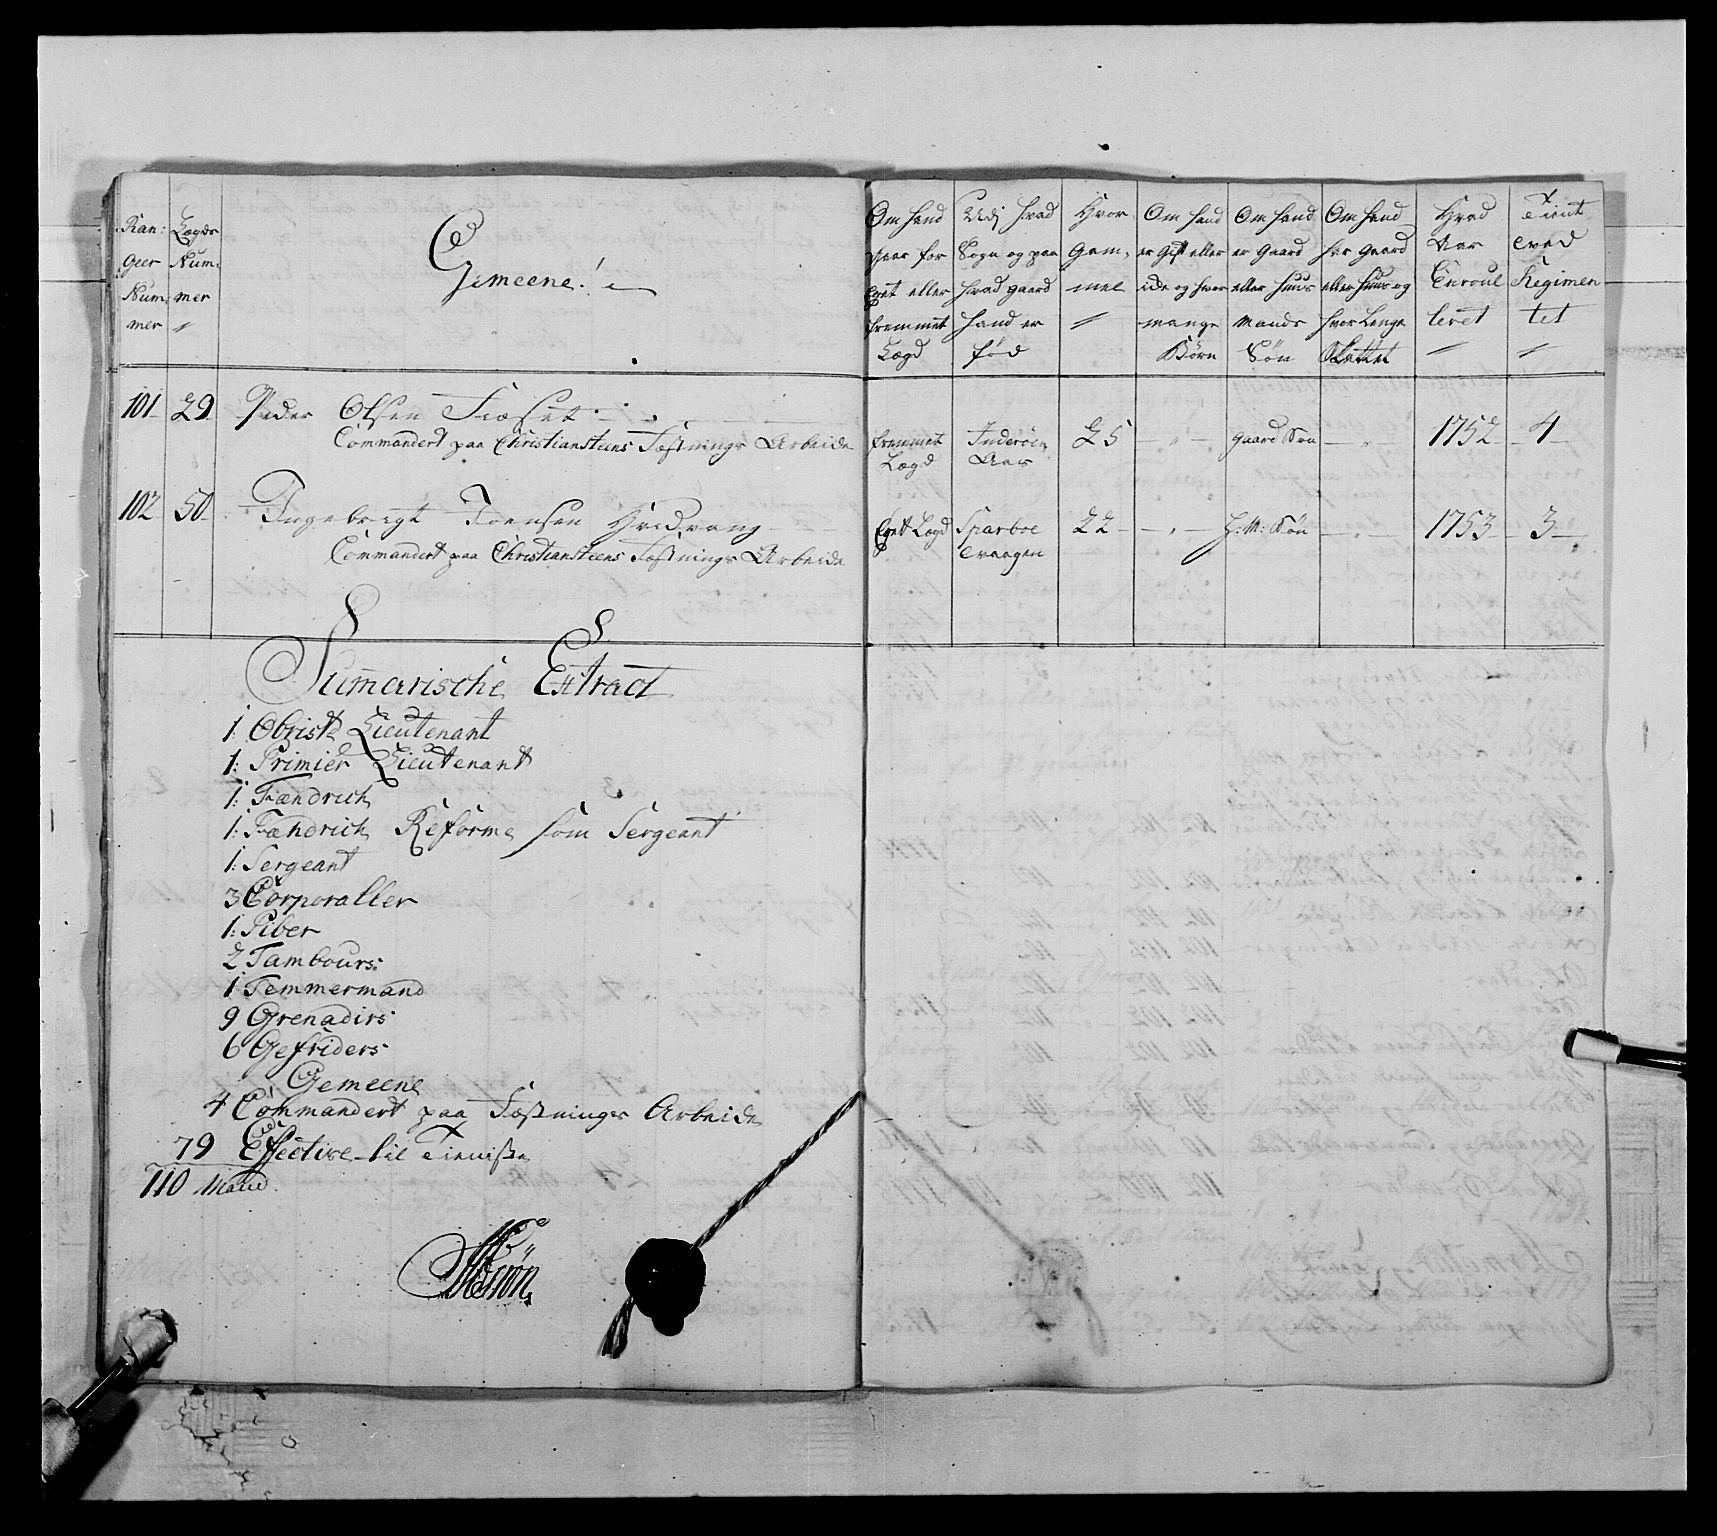 Ran: Lægds Gemeene!
geer Num:
Num: mer
mer
Om hand staar for Eget eller fremmet Lægd
Udj hvad Sogn og paa hvad gaard hand er fød
Hvor Gam: mel
Om hand er Gift eller ide og hvor mange Børn
Om hand er Gaard eller Huus Mands Søn
Om hand har Gaard eller Huus og hvor Lenge
Hvad Aar Enroul leret
Tient ved Regimen tet
101 29 Peder Olsen
Commandert paa Christiansteens Fæstnings Arbeide fremmet Lægd Inderøen 25 Gaard Søn 1752 4
102 50 Ingebrigt Joensen
Commandert paa Christiansteens Fæstnings Arbeide Eget Lægd Sparboe 22 H: M: Søn 1753 3
Sumarische Extract
1 Obriste Lieutenant
1: Primier Lieutenant
1: Fændrich
1: Fændrich Reforme som Sergeant
1: Sergeant
3 Corporaller
1: Piber
2 Tambours:
1 Temmermand
9 Grenadirs
6 Gefriders
Gemeene
4 Commandert paa Fæstnings Arbeide
79 Effective til Tieniste
110 Mand